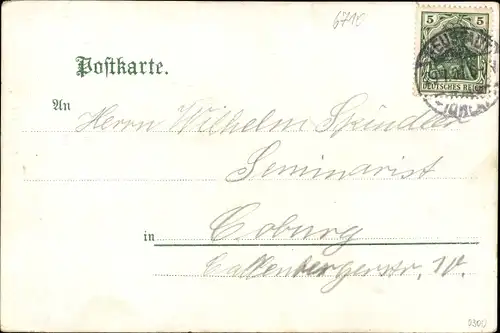 6710
5 5
DEUTSCHES REICH
Postkarte.
An
Herrn Wilhelm Spindler
Seminarist
in Coburg
Callenbergerstr. IV.